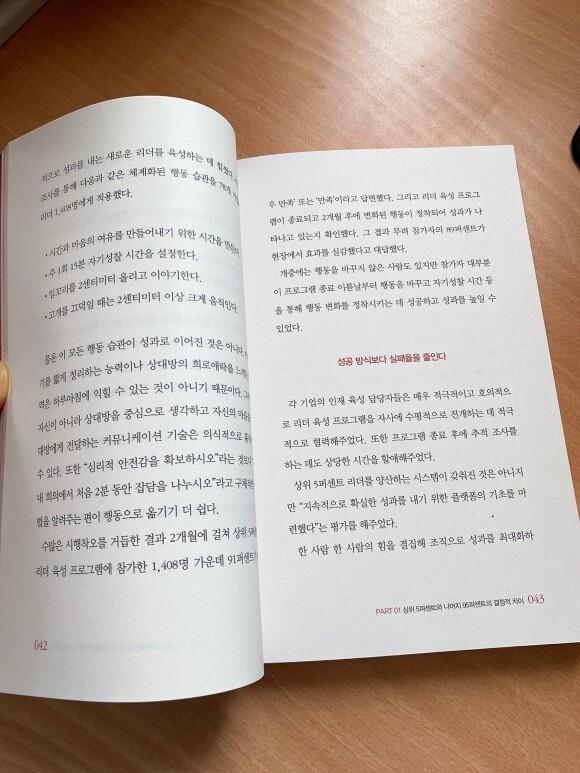 적으로 성과를 내는 새로운 리더를 육성하는 데 힘썼다.
조사를 통해 다음과 같은 체계화된 행동 습관을
리더 1,408명에게 적용했다.
• 시간과 마음의 여유를 만들어내기 위한 시간을
• 주 1회 15분 자기성찰 시간을 설정한다.
• 입꼬리를 2센티미터 올리고 이야기한다.
• 고개를 끄덕일 때는 2센티미터 이상 크게 움직인다.
물론 이 모든 행동 습관이 성과로 이어진 것은 아니다.
기를 짧게 정리하는 능력이나 상대방의 희로애락을
력은 하루아침에 익힐 수 있는 것이 아니기 때문이다.
자신이 아니라 상대방을 중심으로 생각하고 자신의
대방에게 전달하는 커뮤니케이션 기술은 의식적으로
수 있다. 또한 “심리적 안전감을 확보하시오”라는
내 회의에서 처음 2분 동안 잡담을 나누시오”라고
법을 알려주는 편이 행동으로 옮기기 더 쉽다.
수많은 시행착오를 거듭한 결과 2개월에 걸쳐 상위
리더 육성 프로그램에 참가한 1,408명 가운데 91퍼센트가
042
우 만족’ 또는 ‘만족’이라고 답변했다. 그리고 리더 육성 프로그
램이 종료되고 2개월 후에 변화된 행동이 정착되어 성과가 나
타나고 있는지 확인했다. 그 결과 무려 참가자의 89퍼센트가
현장에서 효과를 실감했다고 대답했다.
개중에는 행동을 바꾸지 않은 사람도 있지만 참가자 대부분
이 프로그램 종료 이튿날부터 행동을 바꾸고 자기성찰 시간 등
을 통해 행동 변화를 정착시키는 데 성공하고 성과를 높일 수
있었다.
성공 방식보다 실패율을 줄인다
각 기업의 인재 육성 담당자들은 매우 적극적이고 호의적으
로 리더 육성 프로그램을 자사에 수평적으로 전개하는 데 적극
적으로 협력해주었다. 또한 프로그램 종료 후에 추적 조사를
하는 데도 상당한 시간을 할애해주었다.
상위 5퍼센트 리더를 양산하는 시스템이 갖춰진 것은 아니지
만 “지속적으로 확실한 성과를 내기 위한 플랫폼의 기초를 마
련했다”는 평가를 해주었다.
한 사람 한 사람의 힘을 결집해 조직으로 성과를 최대화하
PART 01 상위 5퍼센트와 나머지 95퍼센트의 결정적 차이 043